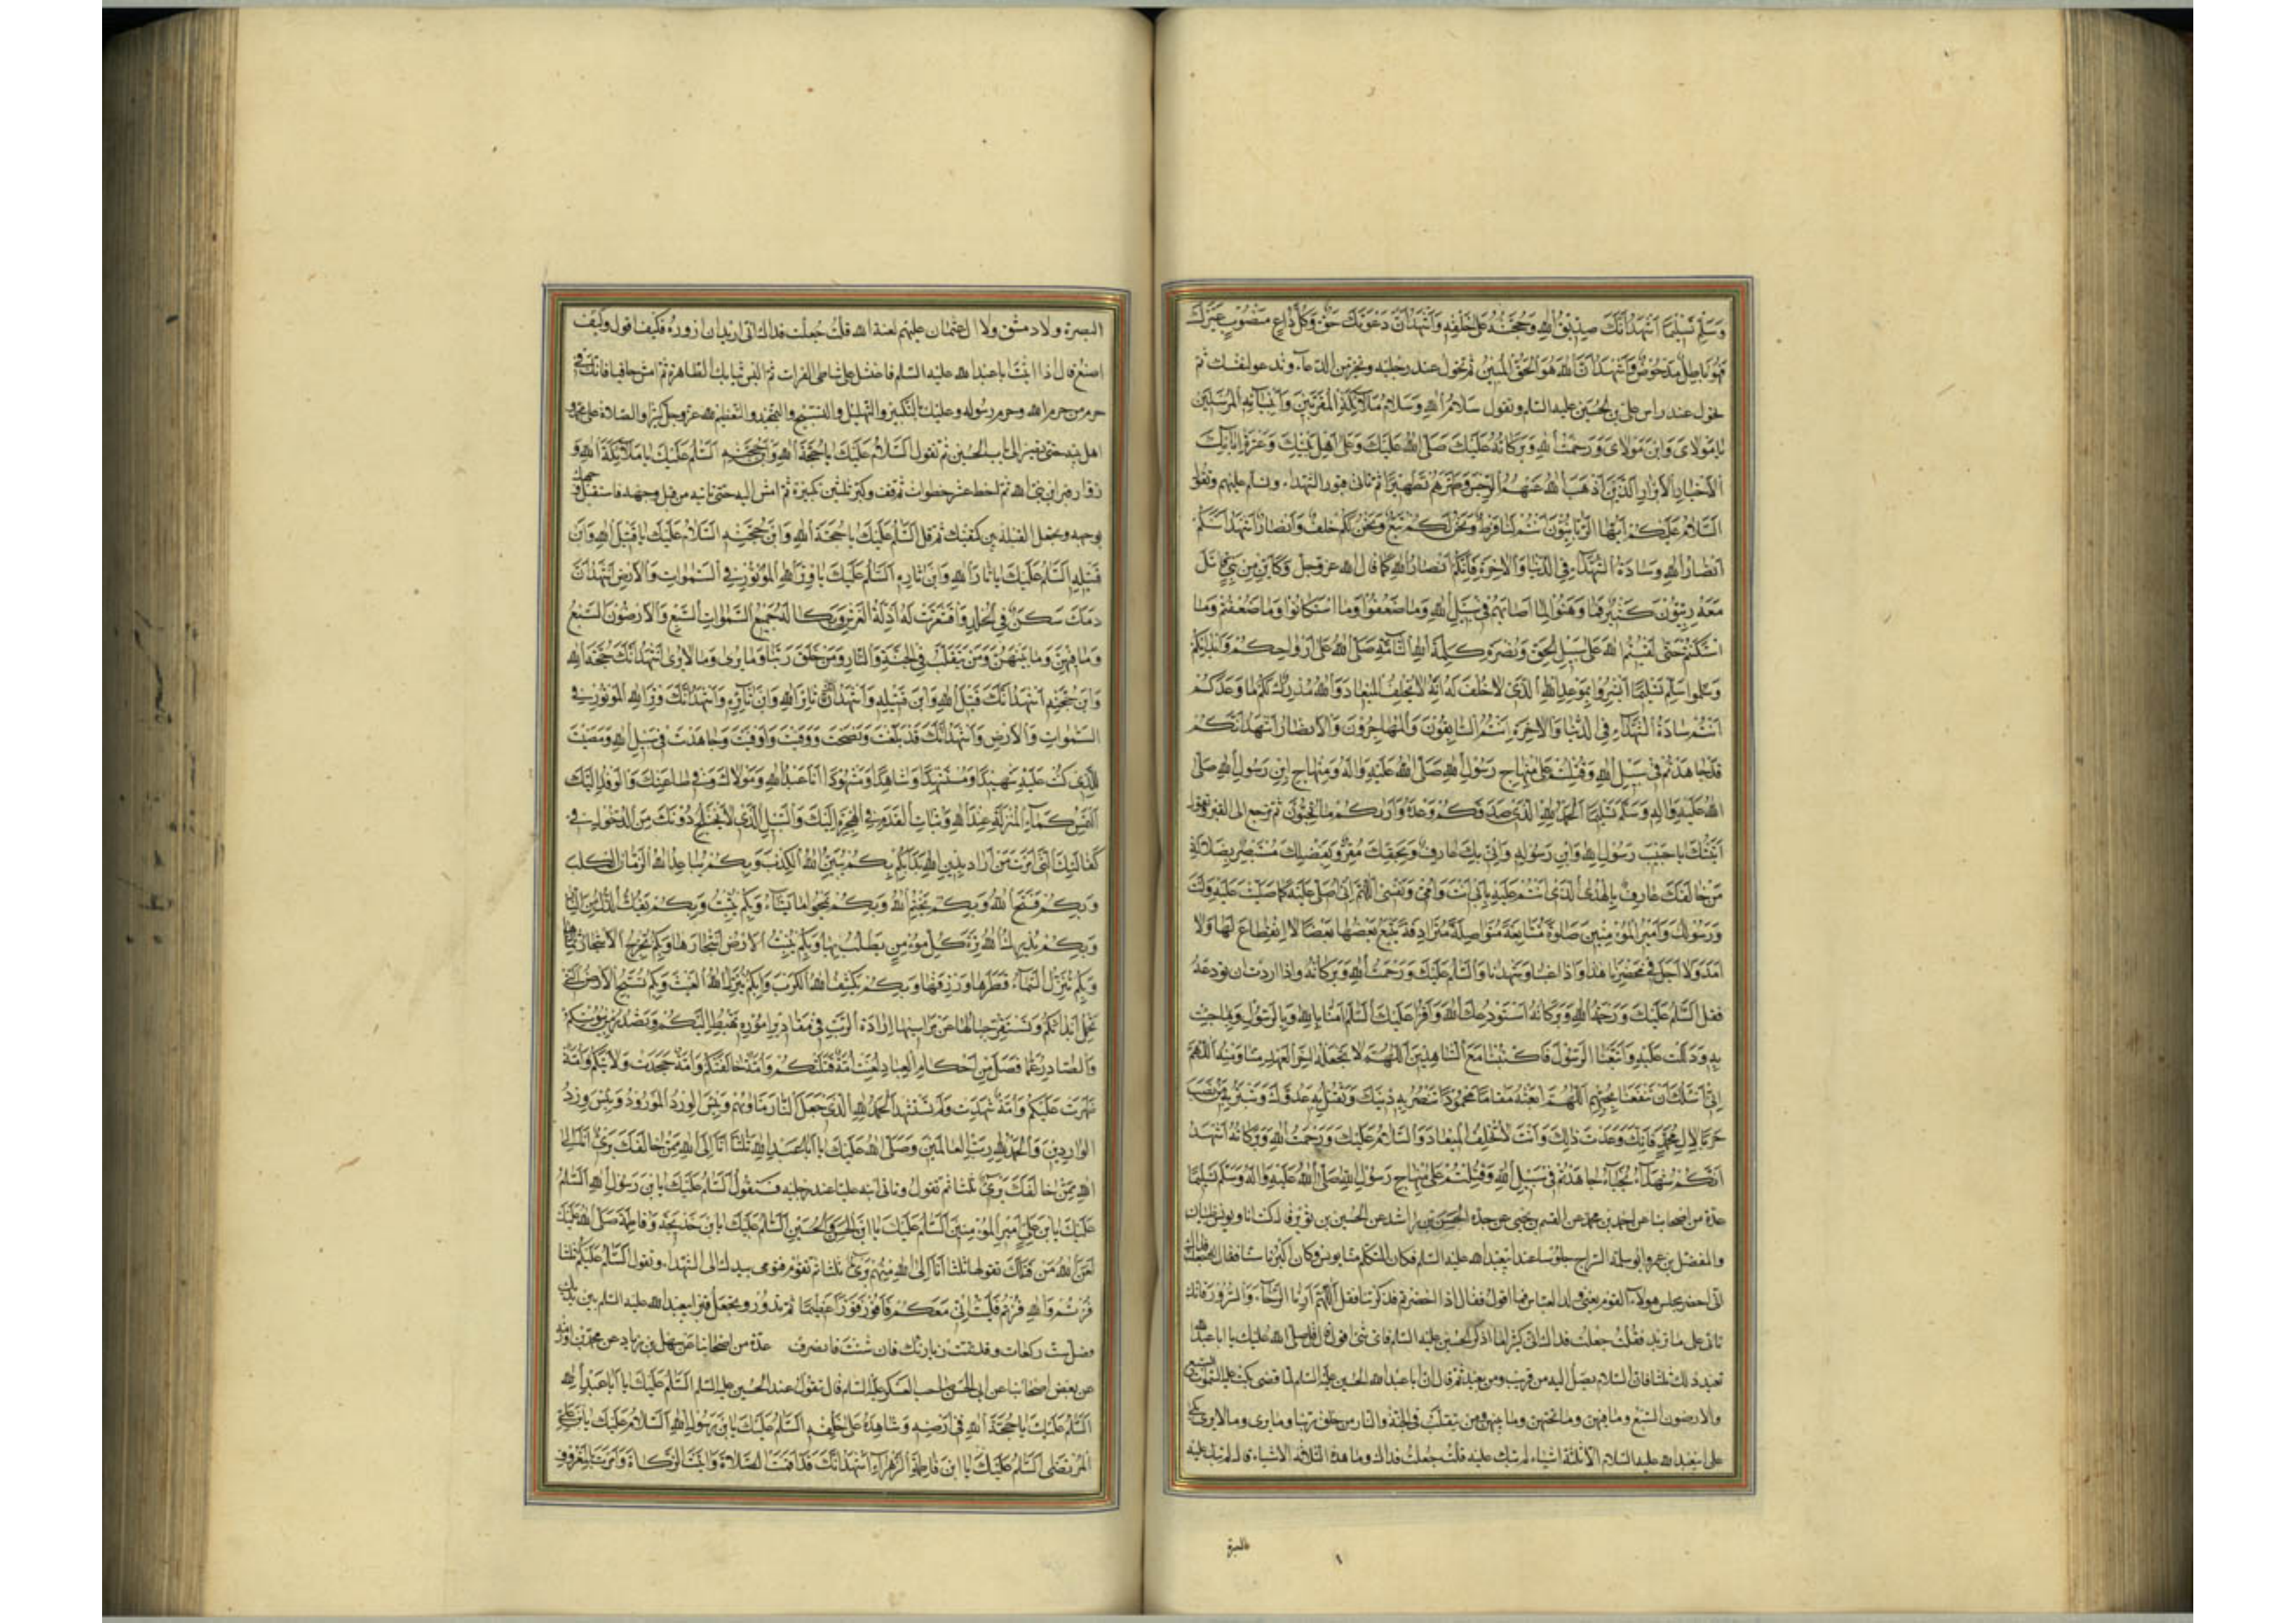 وَسَلِّمْ تَسْلِيمًا اَشْهَدُ اَنَّكَ صِدِّيقُ اللهِ وَحُجَّتُهُ عَلى خَلْقِهِ وَاَشْهَدُ اَنَّ دَعْوَتَكَ حَقٌّ وَكُلُّ دَاعٍ مَنْصُوبٍ غَيْرَكَ
فَهُوَ بَاطِلٌ مَدْحُوضٌ وَاَشْهَدُ اَنَّ اللهَ هُوَ الْحَقُّ الْمُبِينُ ثم تحول عند رجليه وتخير من الدعاء وتدعو لنفسك ثم
تحول عند راس علي بن الحسين عليه السلام وتقول سلام الله وسلام ملائكته المقربين وانبيائه المرسلين
يا مولاي وابن مولاي ورحمت الله وبركاته عليك صلى الله عليك وعلى اهل بيتك وعترة ابائك
الاخيار الابرار الذين اذهب الله عنهم الرجس وطهرهم تطهيرا ثم تاتي قبور الشهداء وتسلم عليهم وتقول
السلام عليكم ايها الربانيون انتم لنا فرط ونحن لكم تبع ونحن لكم خلف وانصار اشهد انكم
انصار الله وسادة الشهداء في الدنيا والاخرة فانكم انصار الله كما قال الله عز وجل وكاين من نبي قاتل
معه ربيون كثير فما وهنوا لما اصابهم في سبيل الله وما ضعفوا وما استكانوا وما ضعفتم وما
استكنتم حتى لقيتم الله على سبيل الحق ونصرة كلمة الله التامة صلى الله على ارواحكم وابدانكم
وسلموا تسليما ابشروا بموعد الله الذي لا خلف له انه لا يخلف الميعاد والله مدرك لكم ما وعدكم
انتم سادة الشهداء في الدنيا والاخرة انتم السابقون والمهاجرون والانصار اشهد انكم
قد جاهدتم في سبيل الله وقتلتم على منهاج رسول الله صلى الله عليه واله ومنهاج ابن رسول الله صلى
الله عليه واله وسلم تسليما الحمد لله الذي صدقكم وعده واراكم ما تحبون ثم ترجع الى القبر وتقول
اتيتك يا حبيب رسول الله وابن رسوله واني بك عارف وبحقك مقر وبفضلك مستبصر بضلالة
من خالفك عارف بالهدى الذي انتم عليه بابي انت وامي ونفسي اللهم اني اصلي عليه كما صليت عليه انت
ورسولك وامير المؤمنين صلوة متتابعة متواصلة مترادفة يتبع بعضها بعضا لا انقطاع لها ولا
امد ولا اجل في محضرنا هذا واذا غبنا وشهدنا والسلام عليك ورحمت الله وبركاته واذا اردت ان تودعه
فقل السلام عليك ورحمة الله وبركاته استودعك الله واقرا عليك السلام امنا بالله وبالرسول وبما جئت
به ودللت عليه واتبعنا الرسول فاكتبنا مع الشاهدين اللهم لا تجعله اخر العهد منا ومنه اللهم
اني اسئلك ان تنفعنا بحبهم اللهم ابعثه مقاما محمودا تنصر به دينك وتقتل به عدوك وتبير به من نصب
حربا لال محمد فانك وعدت ذلك وانت لا تخلف الميعاد والسلام عليك ورحمت الله وبركاته اشهد
انكم شهداء نجباء جاهدتم في سبيل الله وقتلتم على منهاج رسول الله صلى الله عليه واله وسلم تسليما
عدة من اصحابنا عن احمد بن محمد عن القسم بن يحيى عن جده الحسن بن راشد عن الحسين بن ثوير قال كنت انا ويونس بن ظبيان
والمفضل بن عمر وابو سلمة السراج جلوسا عند ابي عبد الله عليه السلام فكان المتكلم منا يونس وكان اكبرنا سنا فقال له جعلت فداك
اني احضر مجلس هولاء القوم يعني ولد العباس فما اقول فقال اذا حضرتهم فذكرتنا فقل اللهم ارنا الرخاء والسرور فانك
تاتي على ما تريد فقلت جعلت فداك اني كثيرا ما اذكر الحسين عليه السلام فاي شيء اقول قال قل صلى الله عليك يا ابا عبد الله
تعيد ذلك ثلثا فان السلام يصل اليه من قريب ومن بعيد ثم قال ان ابا عبد الله الحسين عليه السلام لما قضى بكت عليه السموات السبع
والارضون السبع وما فيهن وما تحتهن وما بينهن ومن يتقلب في الجنة والنار من خلق ربنا وما يرى وما لا يرى بكى
على ابي عبد الله عليه السلام الا ثلثة اشياء لم تبك عليه قلت جعلت فداك وما هذه الثلاثة الاشياء قال لم تبك عليه
البصرة
البصرة ولا دمشق ولا ال عثمان عليهم لعنة الله قلت جعلت فداك اني اريد ان ازوره فكيف اقول وكيف
اصنع قال اذا اتيت ابا عبد الله عليه السلام فاغتسل على شاطى الفرات ثم البس ثيابك الطاهرة ثم امش حافيا فانك في
حرم من حرم الله وحرم رسوله وعليك بالتكبير والتهليل والتسبيح والتمجيد والتعظيم لله عز وجل كثيرا والصلاة على محمد و
اهل بيته حتى تصير الى باب الحسين ثم تقول السلام عليك يا حجة الله وابن حجته السلام عليك يا ملائكة الله و
زوار قبر ابن نبي الله ثم اخط عشر خطوات ثم قف وكبر ثلثين تكبيرة ثم امش اليه حتى تاتيه من قبل وجهه فاستقبل وجهك
بوجهه وتجعل القبلة بين كتفيك ثم قل السلام عليك يا حجة الله وابن حجته السلام عليك يا قتيل الله وابن
قتيله السلام عليك يا ثار الله وابن ثاره السلام عليك يا وتر الله الموتور في السموات والارض اشهد ان
دمك سكن في الخلد واقشعرت له اظلة العرش وبكا له جميع السموات السبع والارضون السبع
وما فيهن وما بينهن ومن يتقلب في الجنة والنار ومن خلق ربنا وما يرى وما لا يرى اشهد انك حجة الله
وابن حجته اشهد انك قتيل الله وابن قتيله واشهد انك ثار الله وابن ثاره واشهد انك وتر الله الموتور في
السموات والارض واشهد انك قد بلغت ونصحت ووفيت واوفيت وجاهدت في سبيل الله ومضيت
للذي كنت عليه شهيدا ومستشهدا وشاهدا ومشهودا انا عبد الله ومولاك وفي طاعتك والوافد اليك
التمس كمال المنزلة عند الله وثبات القدم في الهجرة اليك والسبيل الذي لا يختلج دونك من الدخول في
كفالتك التي امرت بها من اراد الله بدا بكم بكم يبين الله الكذب وبكم يباعد الله الزمان الكلب
وبكم فتح الله وبكم يختم الله وبكم يمحو ما يشاء وبكم يثبت وبكم يفك الذل من رقابنا
وبكم يدرك الله ترة كل مؤمن يطلب بها وبكم تنبت الارض اشجارها وبكم تخرج الاشجار اثمارها
وبكم تنزل السماء قطرها ورزقها وبكم يكشف الله الكرب وبكم ينزل الله الغيث وبكم تسبخ الارض التي
تحمل ابدانكم وتستقر جبالها عن مراسيها ارادة الرب في مقادير اموره تهبط اليكم وتصدر من بيوتكم
والصادر عما فصل من احكام العباد لعنت امة قتلتكم وامة خالفتكم وامة جحدت ولايتكم وامة
ظاهرت عليكم وامة شهدت ولم تستشهد الحمد لله الذي جعل النار ماويهم وبئس الورد المورود وبئس ورد
الواردين والحمد لله رب العالمين وصلى الله عليك يا ابا عبد الله ثلثا انا الى الله ممن خالفك بريء انا الى
الله ممن خالفك بريء ثلثا ثم تقوم وتاتي ابنه عليا عند رجليه فتقول السلام عليك يا بن رسول الله السلام
عليك يا بن علي امير المؤمنين السلام عليك يا ابن الحسن والحسين السلام عليك يا بن خديجة وفاطمة صلى الله عليك
لعن الله من قتلك تقولها ثلثا انا الى الله منهم بريء ثلثا ثم تقوم فتومى بيدك الى الشهداء وتقول السلام عليكم ثلثا
فزتم والله فزتم فليت اني معكم فافوز فوزا عظيما ثم تدور وتجعل قبر ابي عبد الله عليه السلام بين يديك
فصل ست ركعات وقد تمت زيارتك فان شئت فانصرف عدة من اصحابنا عن سهل بن زياد عن محمد بن اورمة
عن بعض اصحابنا عن ابي الحسن صاحب العسكر عليه السلام قال تقول عند الحسين عليه السلام السلام عليك يا ابا عبد الله
السلام عليك يا حجة الله في ارضه وشاهده على خلقه السلام عليك يا بن رسول الله السلام عليك يا بن علي
المرتضى السلام عليك يا ابن فاطمة الزهراء اشهد انك قد اقمت الصلاة واتيت الزكاة وامرت بالمعروف